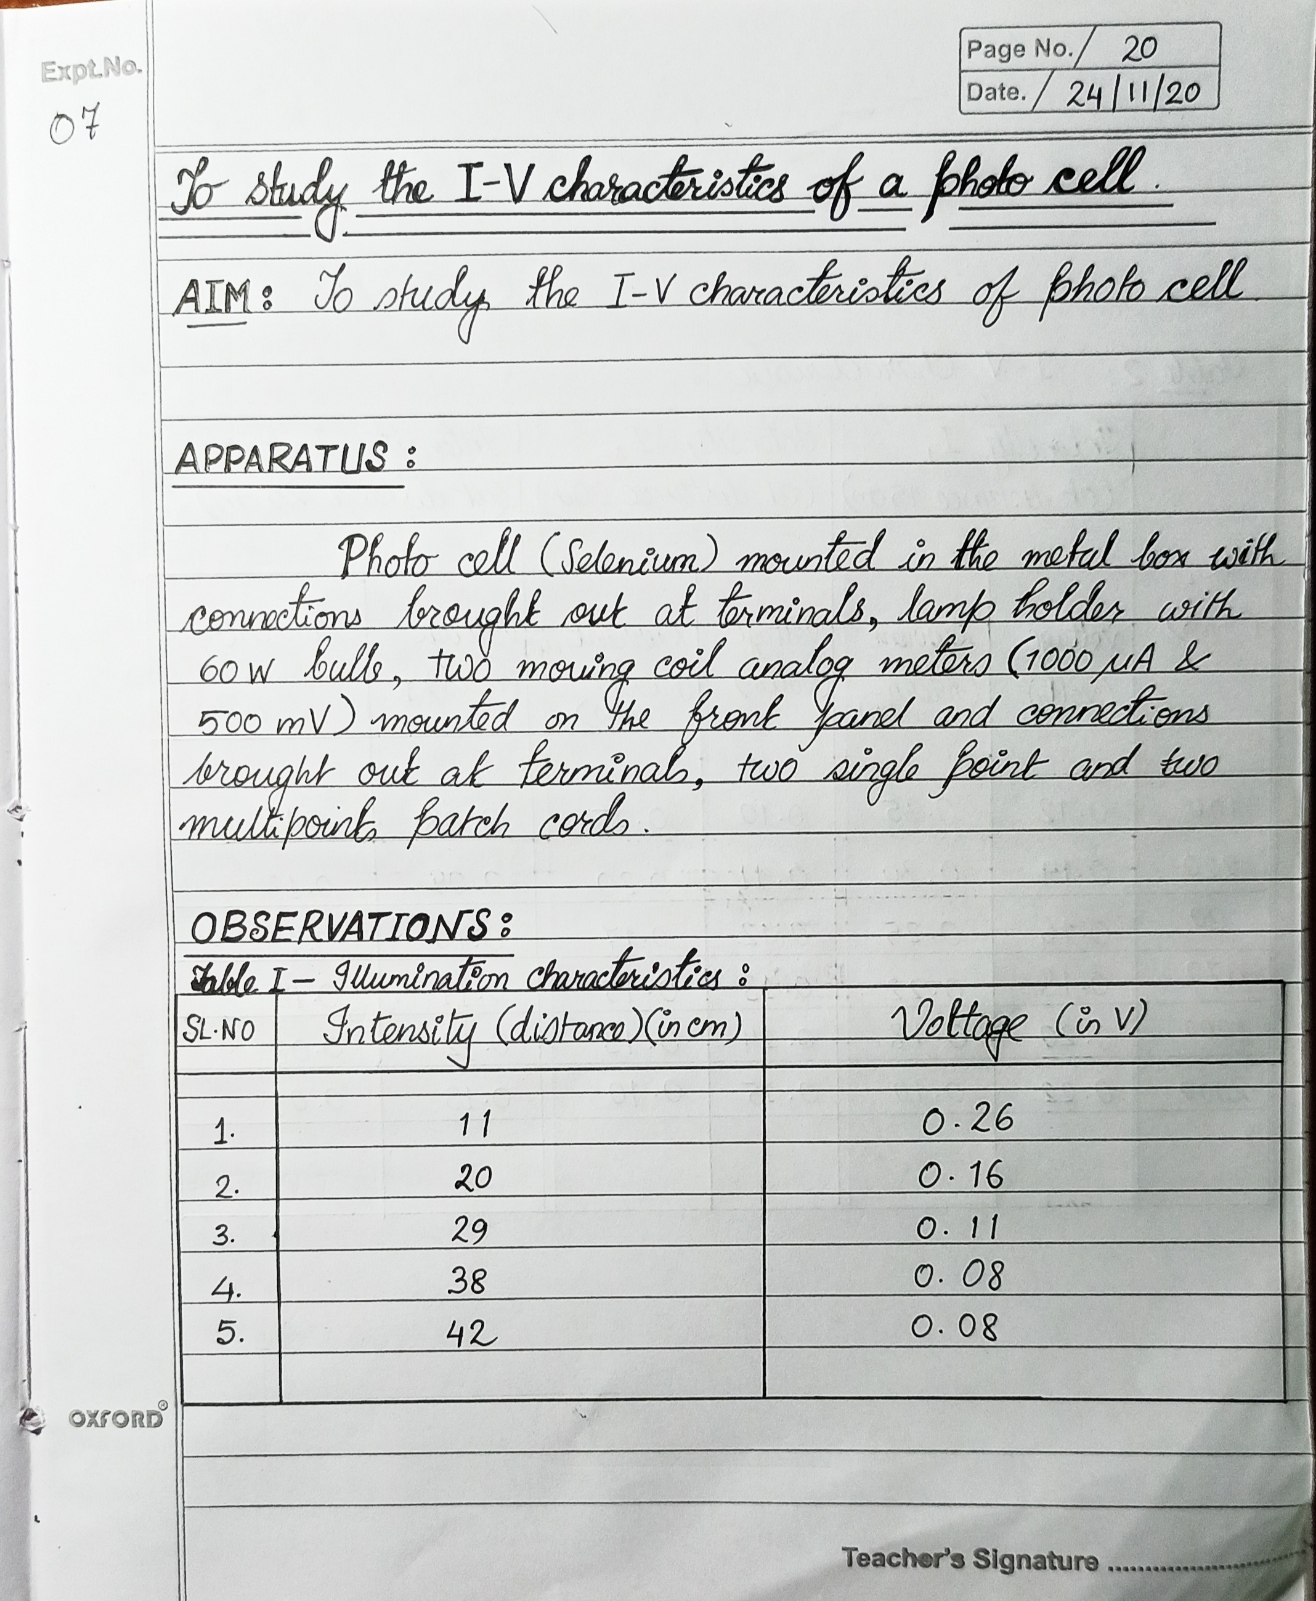 Expt.No.
07
Page No. 20
Date. 24/11/20
To study the I-V characteristics of a photo cell.
AIM: To study the I-V characteristics of photo cell.
APPARATUS :
Photo cell (Selenium) mounted in the metal box with
connections brought out at terminals, lamp holder with
60W bulb, two moving coil analog meters (1000 μA &
500 mV) mounted on the front panel and connections
brought out at terminals, two single point and two
multipoint patch cords.
OBSERVATIONS:
Table I – Illumination characteristics :
SL.NO Intensity (distance)(in cm) Voltage (in V)
1. 11 0.26
2. 20 0.16
3. 29 0.11
4. 38 0.08
5. 42 0.08
OXFORD®
Teacher's Signature ........................